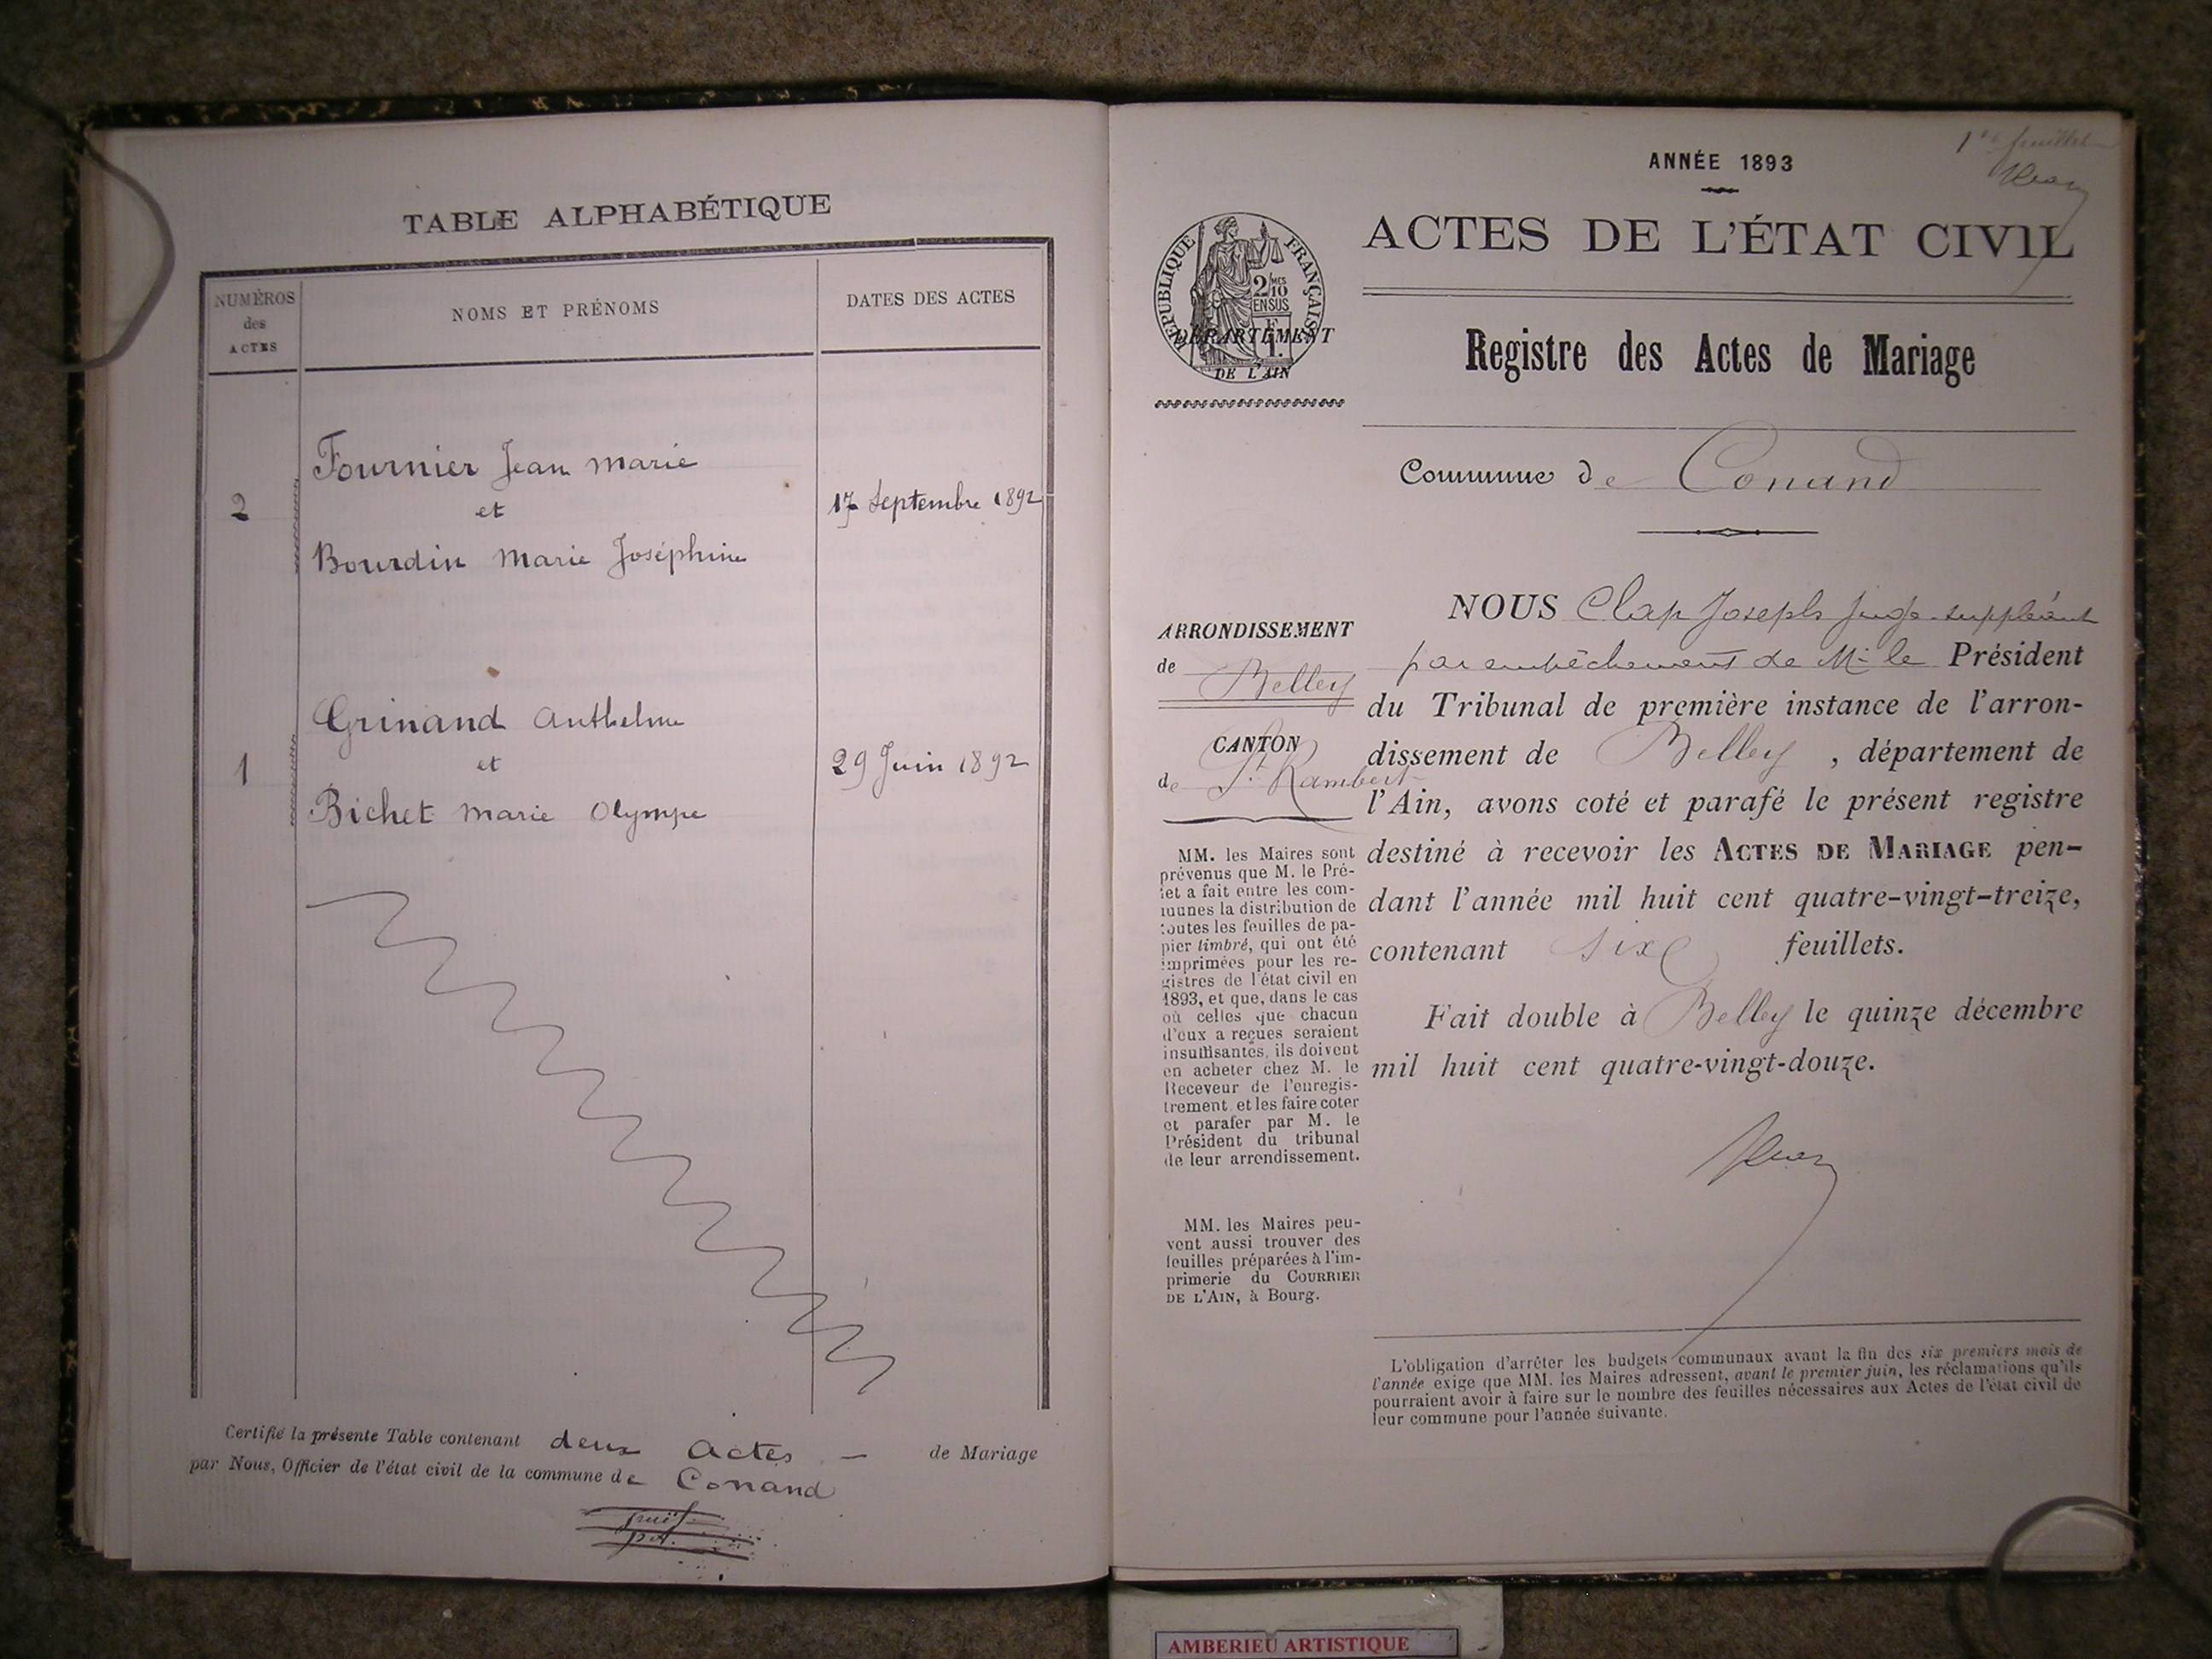 TABLE ALPHABÉTIQUE
NUMÉROS
des
ACTES
NOMS ET PRÉNOMS
DATES DES ACTES
Fournier Jean Marie
2
et
17 Septembre 1892
Bourdin Marie Joséphine
Grinand Anthelme
1
et
29 Juin 1892
Bichet Marie Olympe
Certifié la présente Table contenant deux actes — de Mariage
par Nous, Officier de l'état civil de la commune de Conand
1er feuillet
ANNÉE 1893
ACTES DE L'ÉTAT CIVIL
RÉPUBLIQUE FRANÇAISE
2/10 MES
EN SUS
DÉPARTEMENT
DE L'AIN
Registre des Actes de Mariage
Commune de Conand
ARRONDISSEMENT
de Belley
CANTON
de St Rambert
MM. les Maires sont
prévenus que M. le Pré-
fet a fait entre les com-
munes la distribution de
toutes les feuilles de pa-
pier timbré, qui ont été
imprimées pour les re-
gistres de l'état civil en
1893, et que, dans le cas
où celles que chacun
d'eux a reçues seraient
insuffisantes, ils doivent
en acheter chez M. le
Receveur de l'enregis-
trement et les faire coter
et parafer par M. le
Président du tribunal
de leur arrondissement.
MM. les Maires peu-
vent aussi trouver des
feuilles préparées à l'im-
primerie du COURRIER
DE L'AIN, à Bourg.
NOUS Clap Joseph Juge suppléant
par empêchement de Mr le Président
du Tribunal de première instance de l'arron-
dissement de Belley, département de
l'Ain, avons coté et parafé le présent registre
destiné à recevoir les ACTES DE MARIAGE pen-
dant l'année mil huit cent quatre-vingt-treize,
contenant six feuillets.
Fait double à Belley le quinze décembre
mil huit cent quatre-vingt-douze.
L'obligation d'arrêter les budgets communaux avant la fin des six premiers mois de
l'année exige que MM. les Maires adressent, avant le premier juin, les réclamations qu'ils
pourraient avoir à faire sur le nombre des feuilles nécessaires aux Actes de l'état civil de
leur commune pour l'année suivante.
AMBERIEU ARTISTIQUE